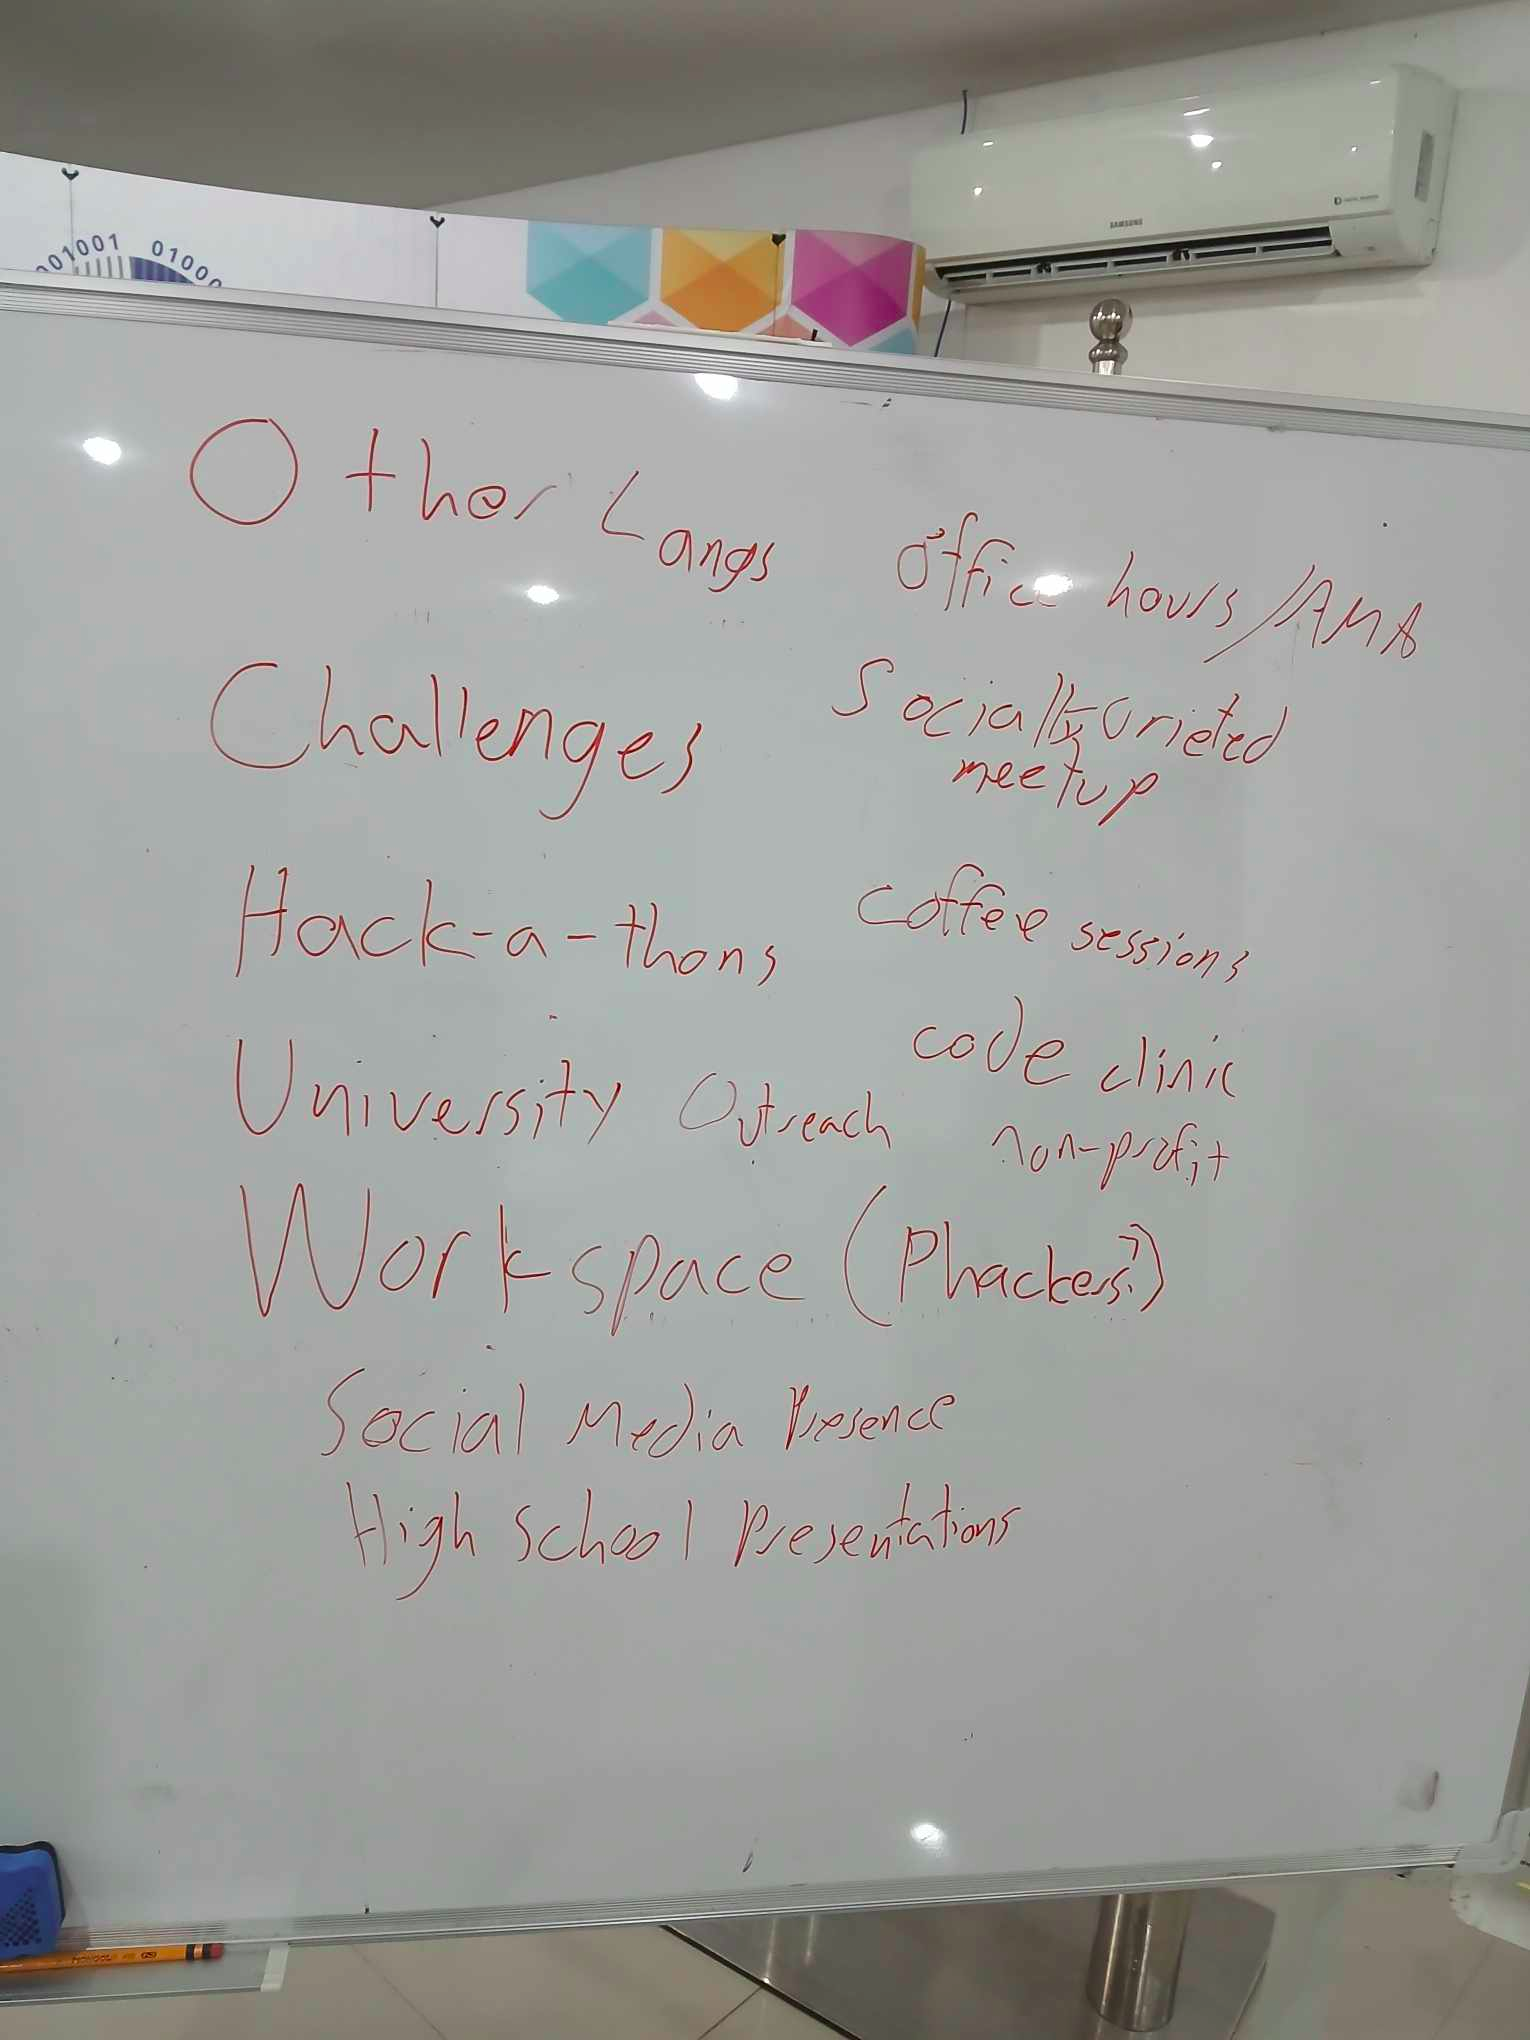 001001 01000
SAMSUNG
Other Langs
Office hours/AMA
Challenges
Socially Orieted
meetup
Hack-a-thons
coffee sessions
University Outreach
code clinic
non-profit
Workspace (Phackers?)
Social Media Presence
High School Presentations
MONGOL